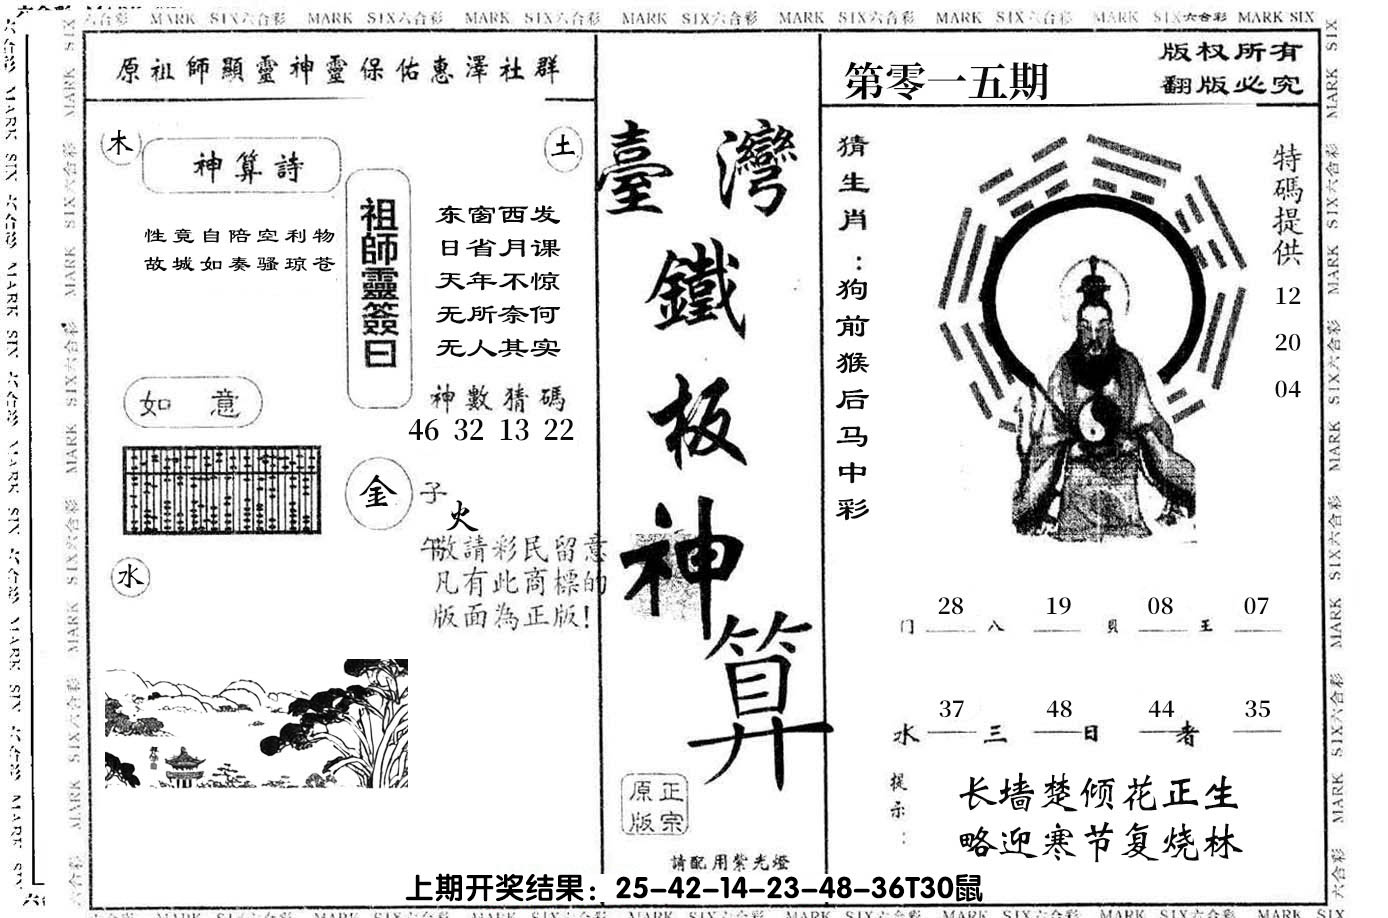 MARK SIX六合彩 MARK SIX六合彩 MARK SIX六合彩 MARK SIX六合彩 MARK SIX六合彩 MARK SIX六合彩 MARK SIX六合彩 MARK SIX
原祖師顯靈神靈保佑惠澤社群
木
神算詩
土
性竟自陪空利物
故城如奏骚琼苍
祖師靈簽曰
东窗西发
日省月课
天年不惊
无所奈何
无人其实
神數猜碼
46 32 13 22
如 意
金
子
火
午
水
敬請彩民留意
凡有此商標的
版面為正版!
臺灣
鐵
板
神
算
正宗
原版
請配用紫光燈
第零一五期
版权所有
翻版必究
猜生肖:狗前猴后马中彩
特碼提供
12
20
04
28 19 08 07
门 八 貝 王
37 48 44 35
水 三 日 者
提示:
长墙楚倾花正生
略迎寒节复烧林
上期开奖结果：25-42-14-23-48-36T30鼠